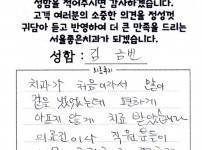 성함을 적어주시면 감사하겠습니다.
고객 여러분의 소중한 의견을 정성껏
귀담아 듣고 반영하여 더 큰 만족을 드리는
서울좋은치과가 되겠습니다.
성함: 김 금빈
치과가 처음이라서 많이
겁은 났었는데 편하게
아프지 않게 치료 받았습니다
의료진이나 직원분들이